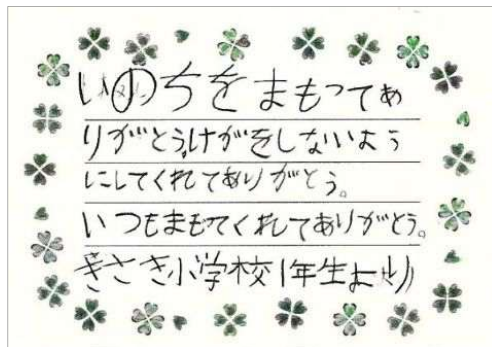 いのちをまもってあ
りがとう。けがをしないよう
にしてくれてありがとう。
いつもまもてくれてありがとう。
きさき小学校1年生より